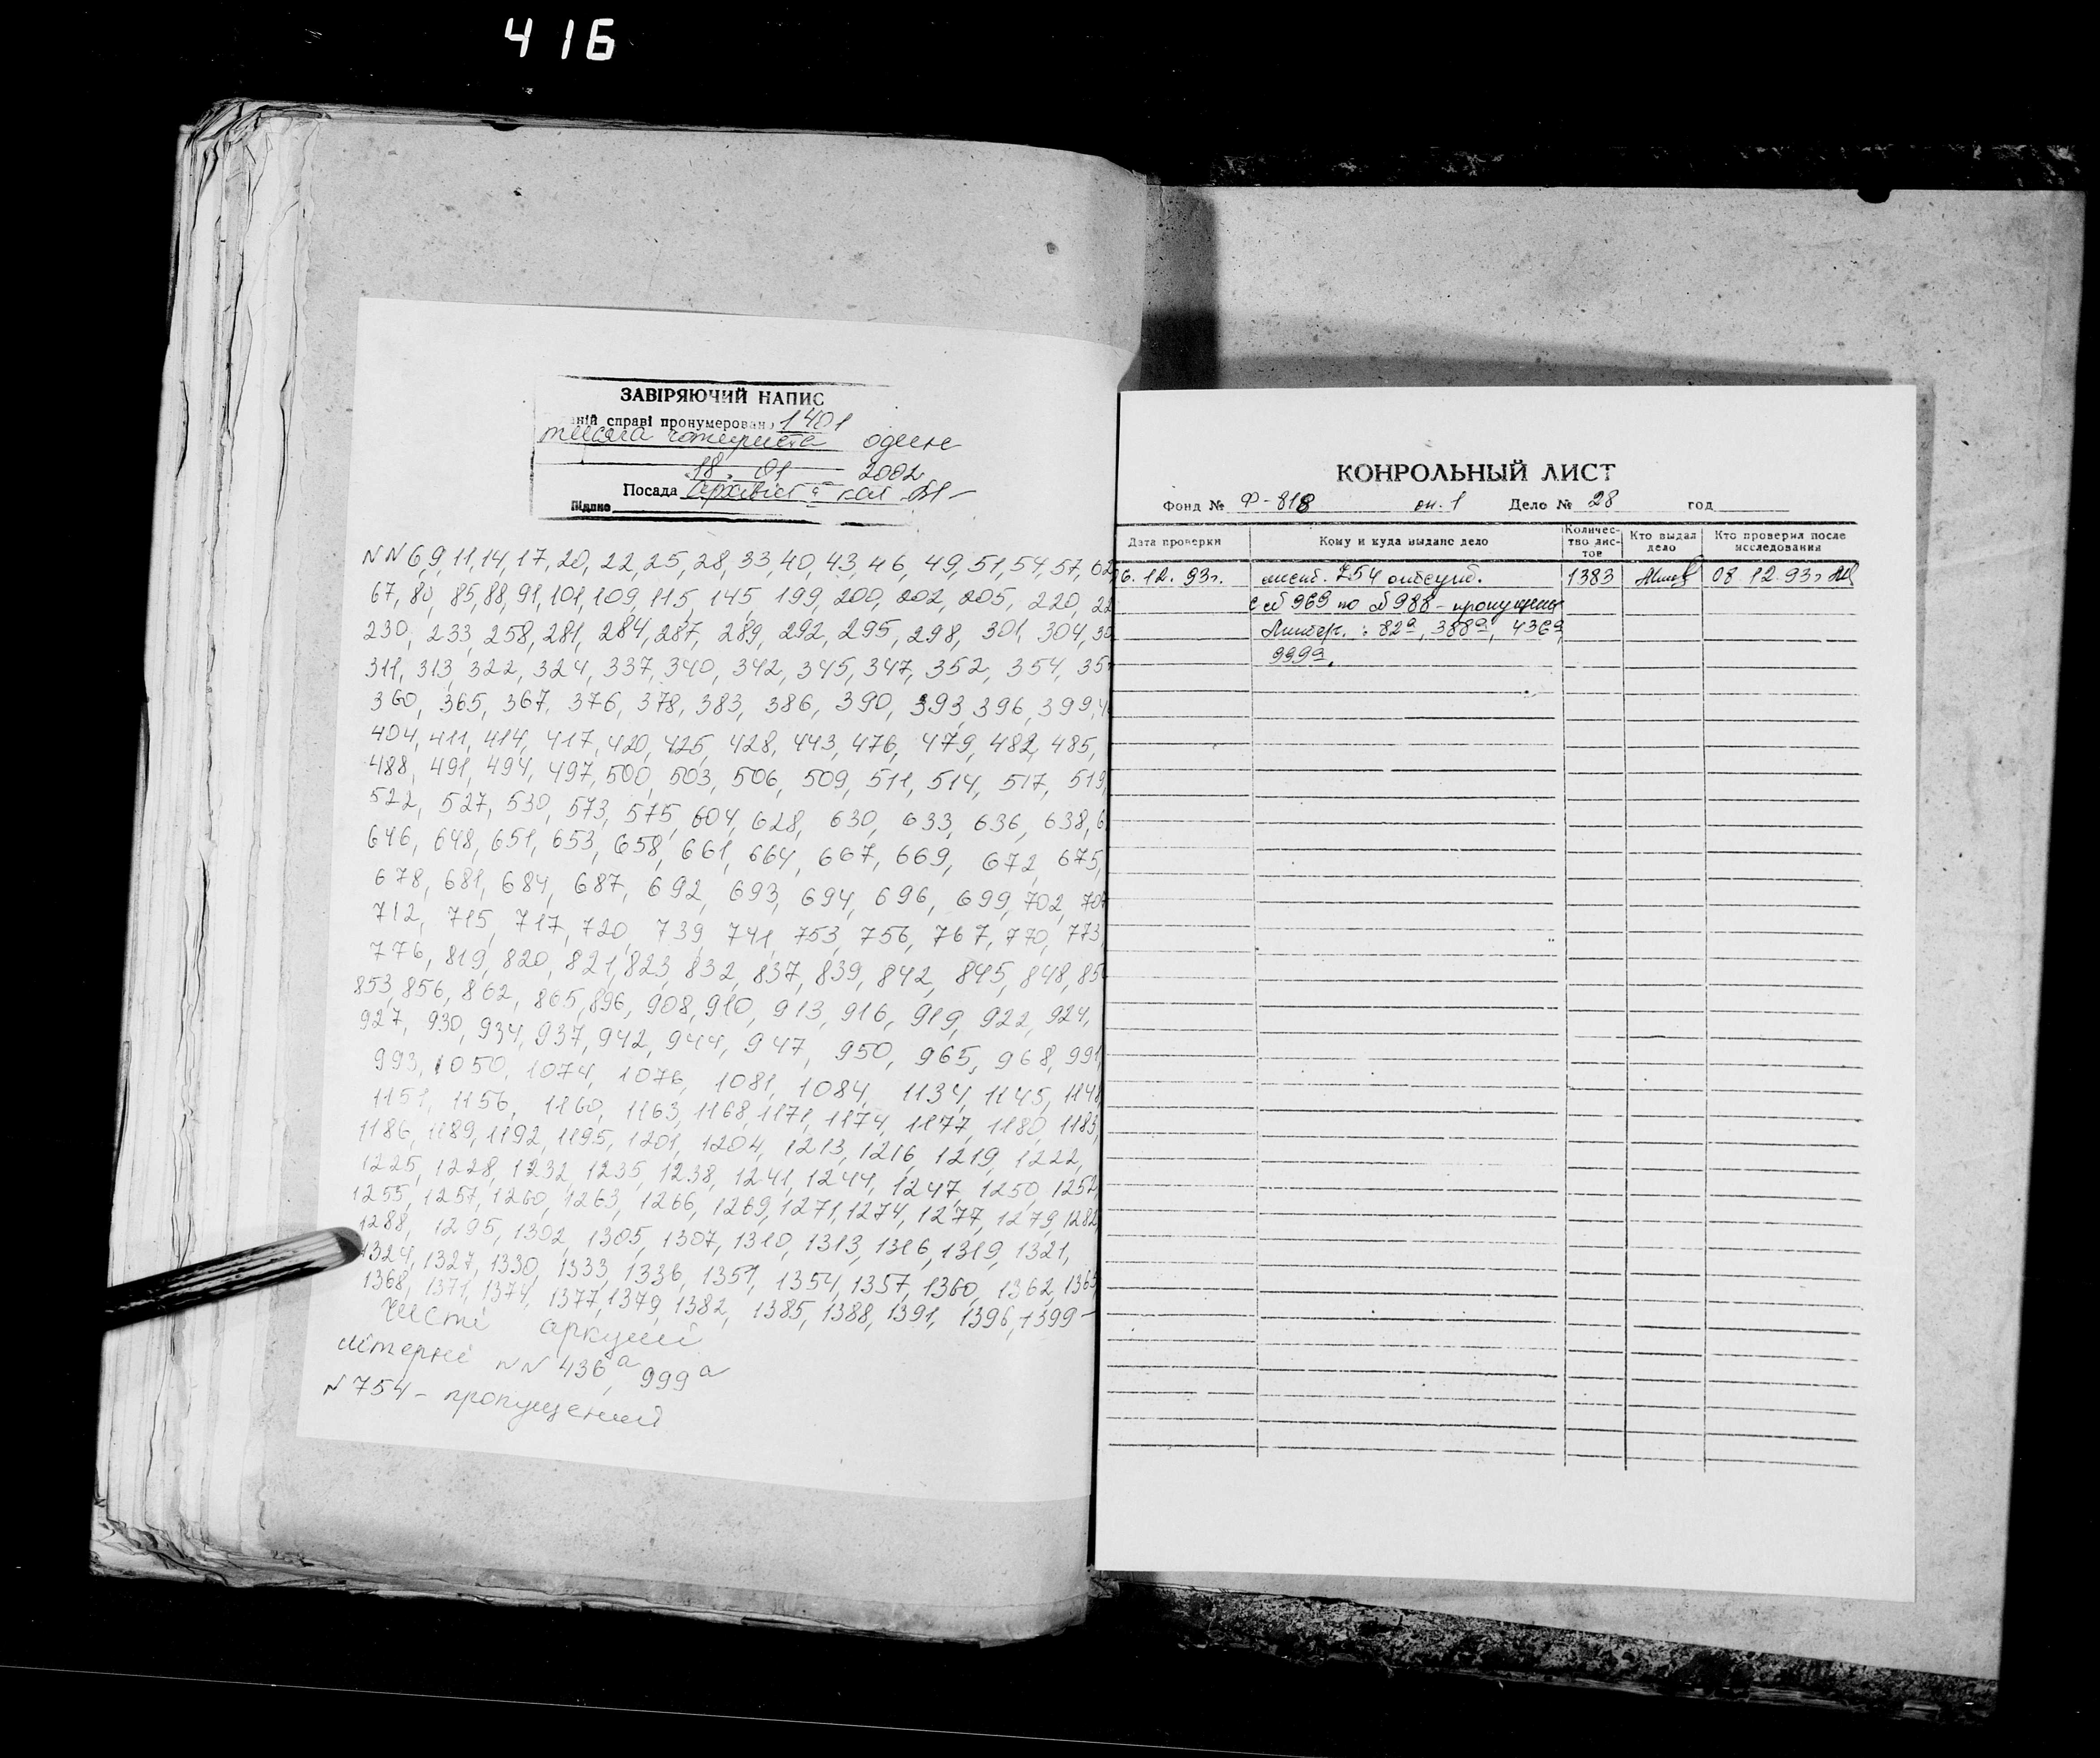 416
ЗАВІРЯЮЧИЙ НАПИС
ній справі пронумеровано 1401
тисяча чотириста один
18. 01 2002
Посада архівіст
Підпис
NN 6, 9, 11, 14, 17, 20, 22, 25, 28, 33, 40, 43, 46, 49, 51, 54, 57, 62
67, 80, 85, 88, 91, 101, 109, 115, 145, 199, 200, 202, 205, 220, 22
230, 233, 258, 281, 284, 287, 289, 292, 295, 298, 301, 304, 30
311, 313, 322, 324, 337, 340, 342, 345, 347, 352, 354, 35
360, 365, 367, 376, 378, 383, 386, 390, 393, 396, 399, 4
404, 411, 414, 417, 420, 425, 428, 443, 476, 479, 482, 485,
488, 491, 494, 497, 500, 503, 506, 509, 511, 514, 517, 519,
522, 527, 530, 573, 575, 604, 628, 630, 633, 636, 638, 6
646, 648, 651, 653, 658, 661, 664, 667, 669, 672, 675,
678, 681, 684, 687, 692, 693, 694, 696, 699, 702, 707
712, 715, 717, 720, 739, 741, 753, 756, 767, 770, 773,
776, 819, 820, 821, 823, 832, 837, 839, 842, 845, 848, 85
853, 856, 862, 865, 896, 908, 910, 913, 916, 919, 922, 924,
927, 930, 934, 937, 942, 944, 947, 950, 965, 968, 991,
993, 1050, 1074, 1076, 1081, 1084, 1134, 1145, 1148
1151, 1156, 1160, 1163, 1168, 1171, 1174, 1177, 1180, 1183,
1186, 1189, 1192, 1195, 1201, 1204, 1213, 1216, 1219, 1222,
1225, 1228, 1232, 1235, 1238, 1241, 1244, 1247, 1250, 1252,
1255, 1257, 1260, 1263, 1266, 1269, 1271, 1274, 1277, 1279, 1282,
1288, 1295, 1302, 1305, 1307, 1310, 1313, 1316, 1319, 1321,
1324, 1327, 1330, 1333, 1336, 1351, 1354, 1357, 1360, 1362, 1365
1368, 1371, 1374, 1377, 1379, 1382, 1385, 1388, 1391, 1396, 1399 –
Чисті аркуші
літерні NN 436а, 999а
N 754 – пропущений
КОНРОЛЬНЫЙ ЛИСТ
Фонд № Ф-818 оп. 1 Дело № 28 год
Дата проверки Кому и куда выдано дело Количес- тво лис- тов Кто выдал дело Кто проверил после исследования
6. 12. 93г. лист. 754 отсутб. 1383 08 12. 93г
с № 969 по № 988 – пропущены
Литер. : 82а, 388а, 436а,
999а.